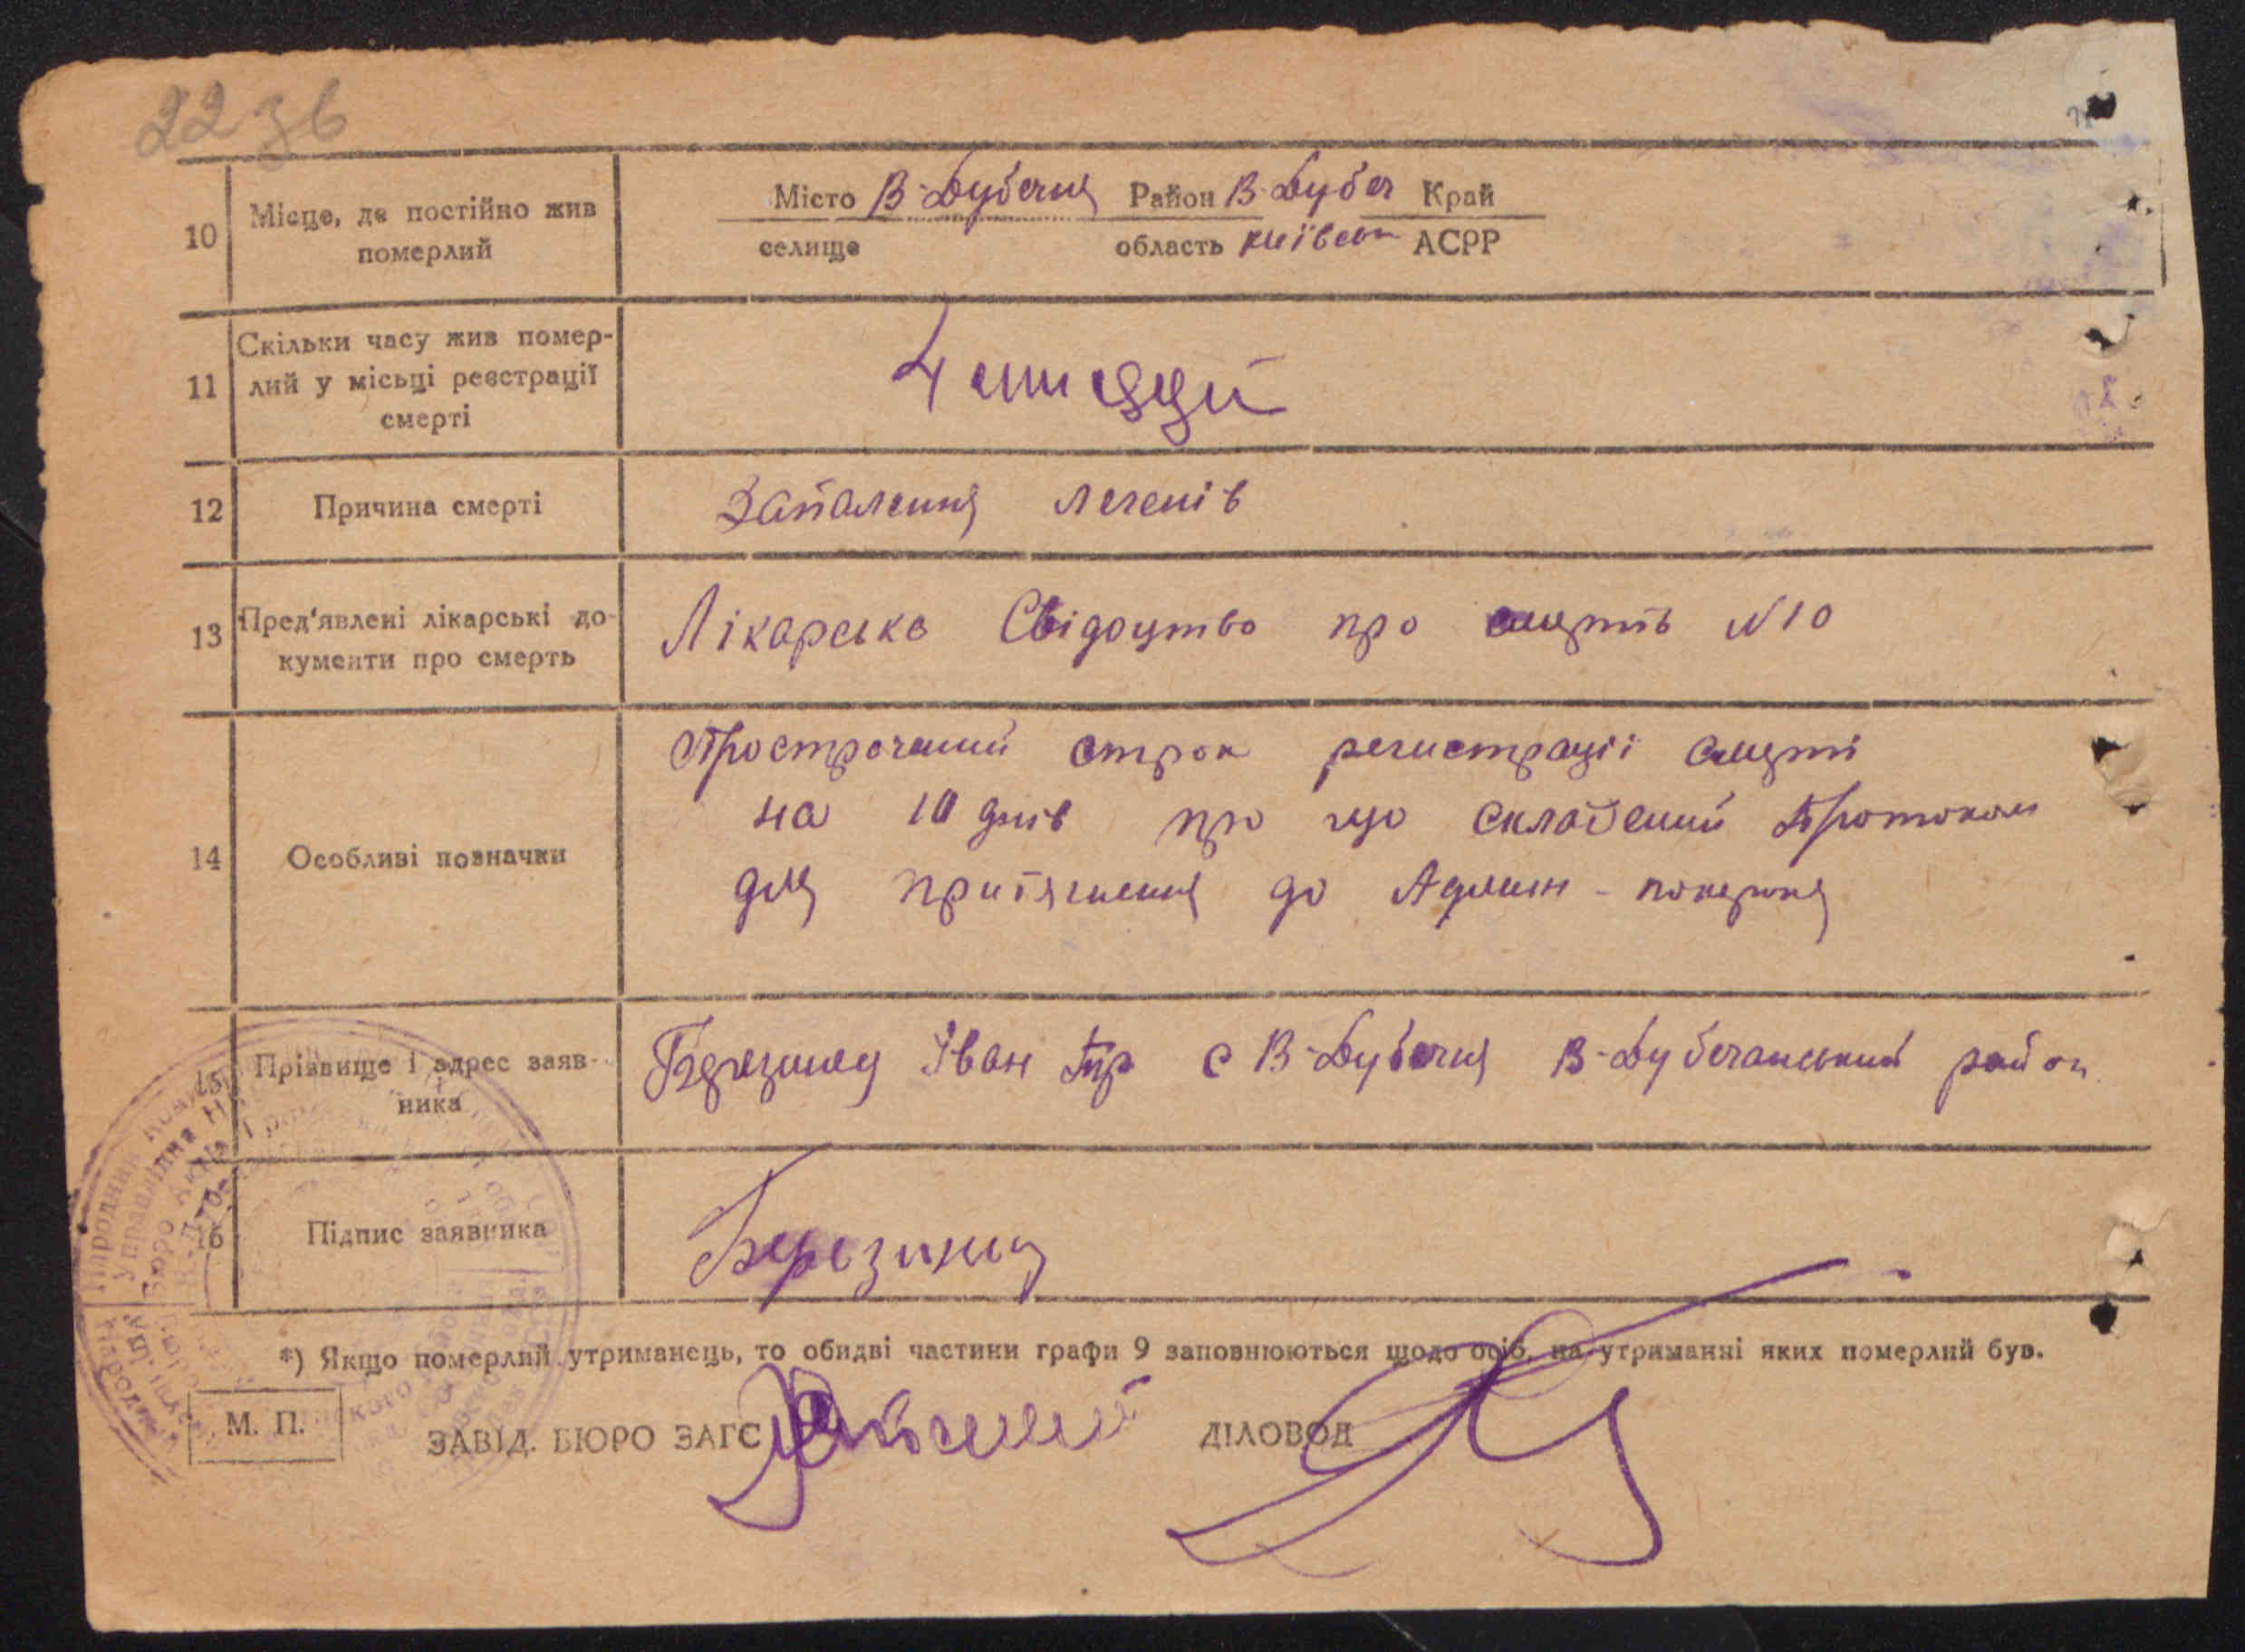 22 зв
10 Місце, де постійно жив померлий
Місто В-Дубечня Район В-Дубеч Край
селище область київськ АСРР
11 Скільки часу жив помер-
лий у місьці реєстрації
смерті
4 місяці
12 Причина смерті Запалення легенів
13 Пред'явлені лікарські до-
кументи про смерть
Лікарське Свідоцтво про смерть N10
14 Особливі позначки
Прострочений строк регистрації смерті
на 10 днів про що складений протокол
для притягнення до Админ-
15 Прізвище і адрес заяв-
ника
Іван с В-Дубечня В-Дубечанський район
16 Підпис заявника
*) Якщо померлий утриманець, то обидві частини графи 9 заповнюються щодо осіб, на утриманні яких померлий був.
М. П. ЗАВІД. БЮРО ЗАГС ДІЛОВОД